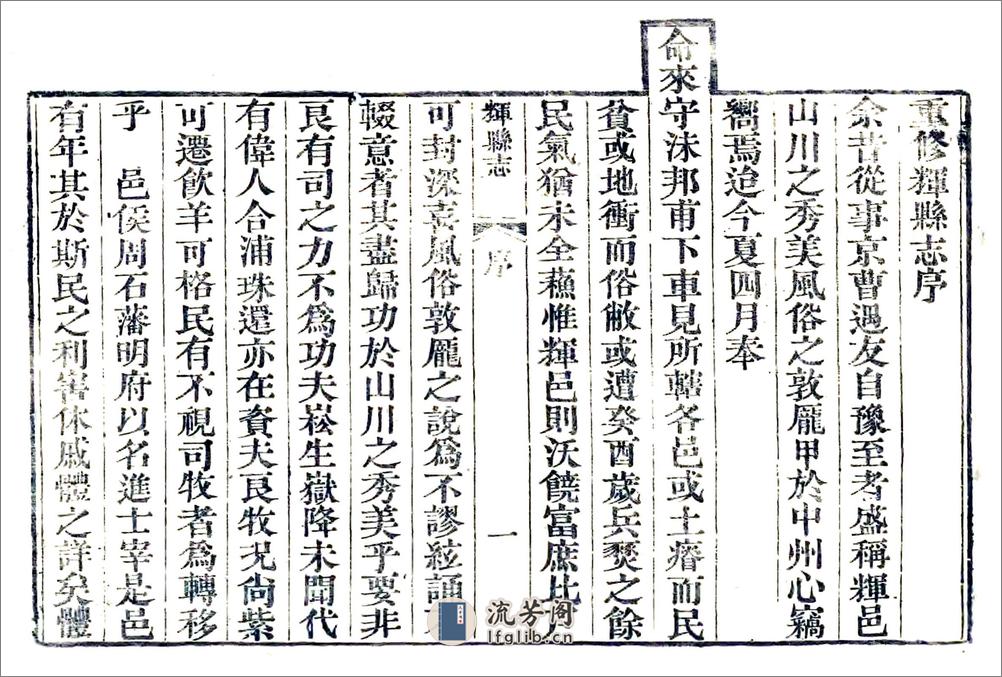 重修輝縣志序
余昔從事京曹遇友自豫至者盛稱輝邑
山川之秀美風俗之敦龐甲於中州心竊
嚮焉迨今夏四月奉
命來守沬邦甫下車見所轄各邑或土瘠而民
貧或地衝而俗敝或遭癸酉歲兵燹之餘
民氣猶未全蘓惟輝邑則沃饒富庶比
輝縣志 序 一
可封深喜風俗敦龐之說為不謬絃誦
輟意者其盡歸功於山川之秀美乎要非
良有司之力不為功夫崧生嶽降未聞代
有偉人合浦珠還亦在資夫良牧況尚紫
可遷飲羊可格民有不視司牧者為轉移
乎 邑侯周石藩明府以名進士宰是邑
有年其於斯民之利害休戚體之詳矣體
流芳阁
lfglib.cn